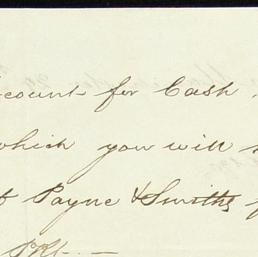 ccount for Cash
which you will
f Payne & Smiths